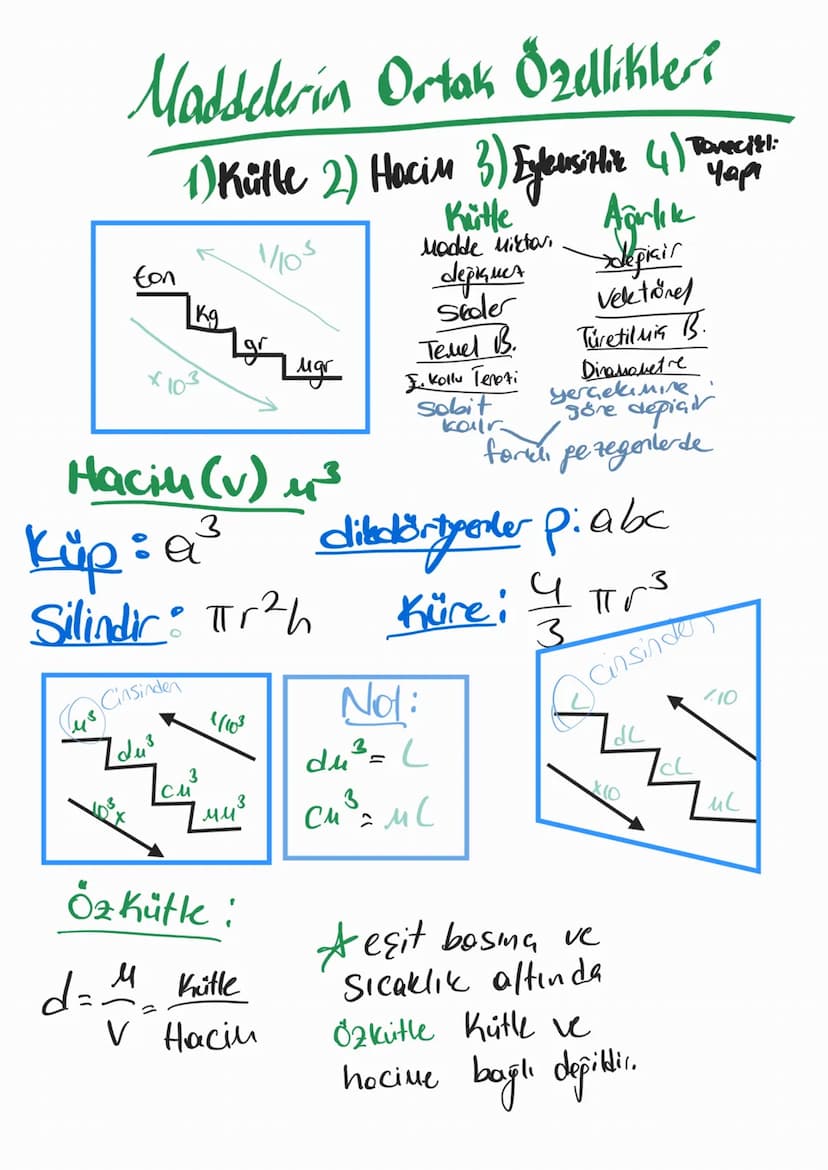 Maddelerin Ortak Özellikleri
1) Kütle 2) Hacim 3) Eylemsizlik 4) Tanecikli Yapı
ton
kg
gr
mgr
1/10³
x 10³
Kütle
Madde Miktarı
değişmez
Skaler
Temel B.
E. Kollu Terazi
sabit
kalır
Ağırlık
değişir
Vektörel
Türetilmiş B.
Dinamometre
yerçekimine
göre değişir
farklı gezegenlerde
Hacim (v) m³
Küp: a³
dikdörtgenler p: abc
Silindir: πr²h
Küre: 4/3 πr³
m³ Cinsinden
dm³
cm³
mm³
1/10³
10³ x
Not:
dm³ = L
cm³ = mL
L cinsinden
dL
cL
mL
x10
Özkütle:
d = m/V = Kütle/Hacim
eşit basınç ve
sıcaklık altında
özkütle kütle ve
hacime bağlı değildir.